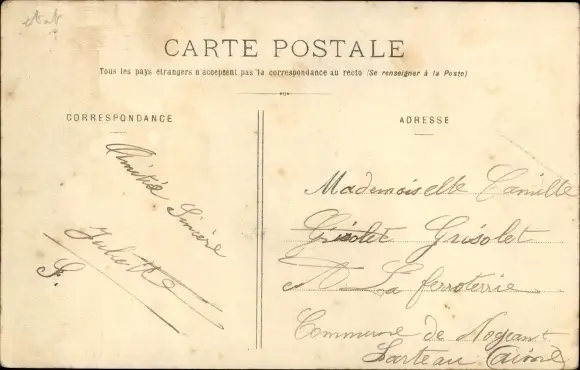 CARTE POSTALE
Tous les pays étrangers n'acceptent pas la correspondance au recto (Se renseigner à la Poste)
CORRESPONDANCE
ADRESSE
Amitié Sincère
Juliette
Mademoiselle Camille
Grisolet
La ferroterie
Commune de Nogent
Larteau